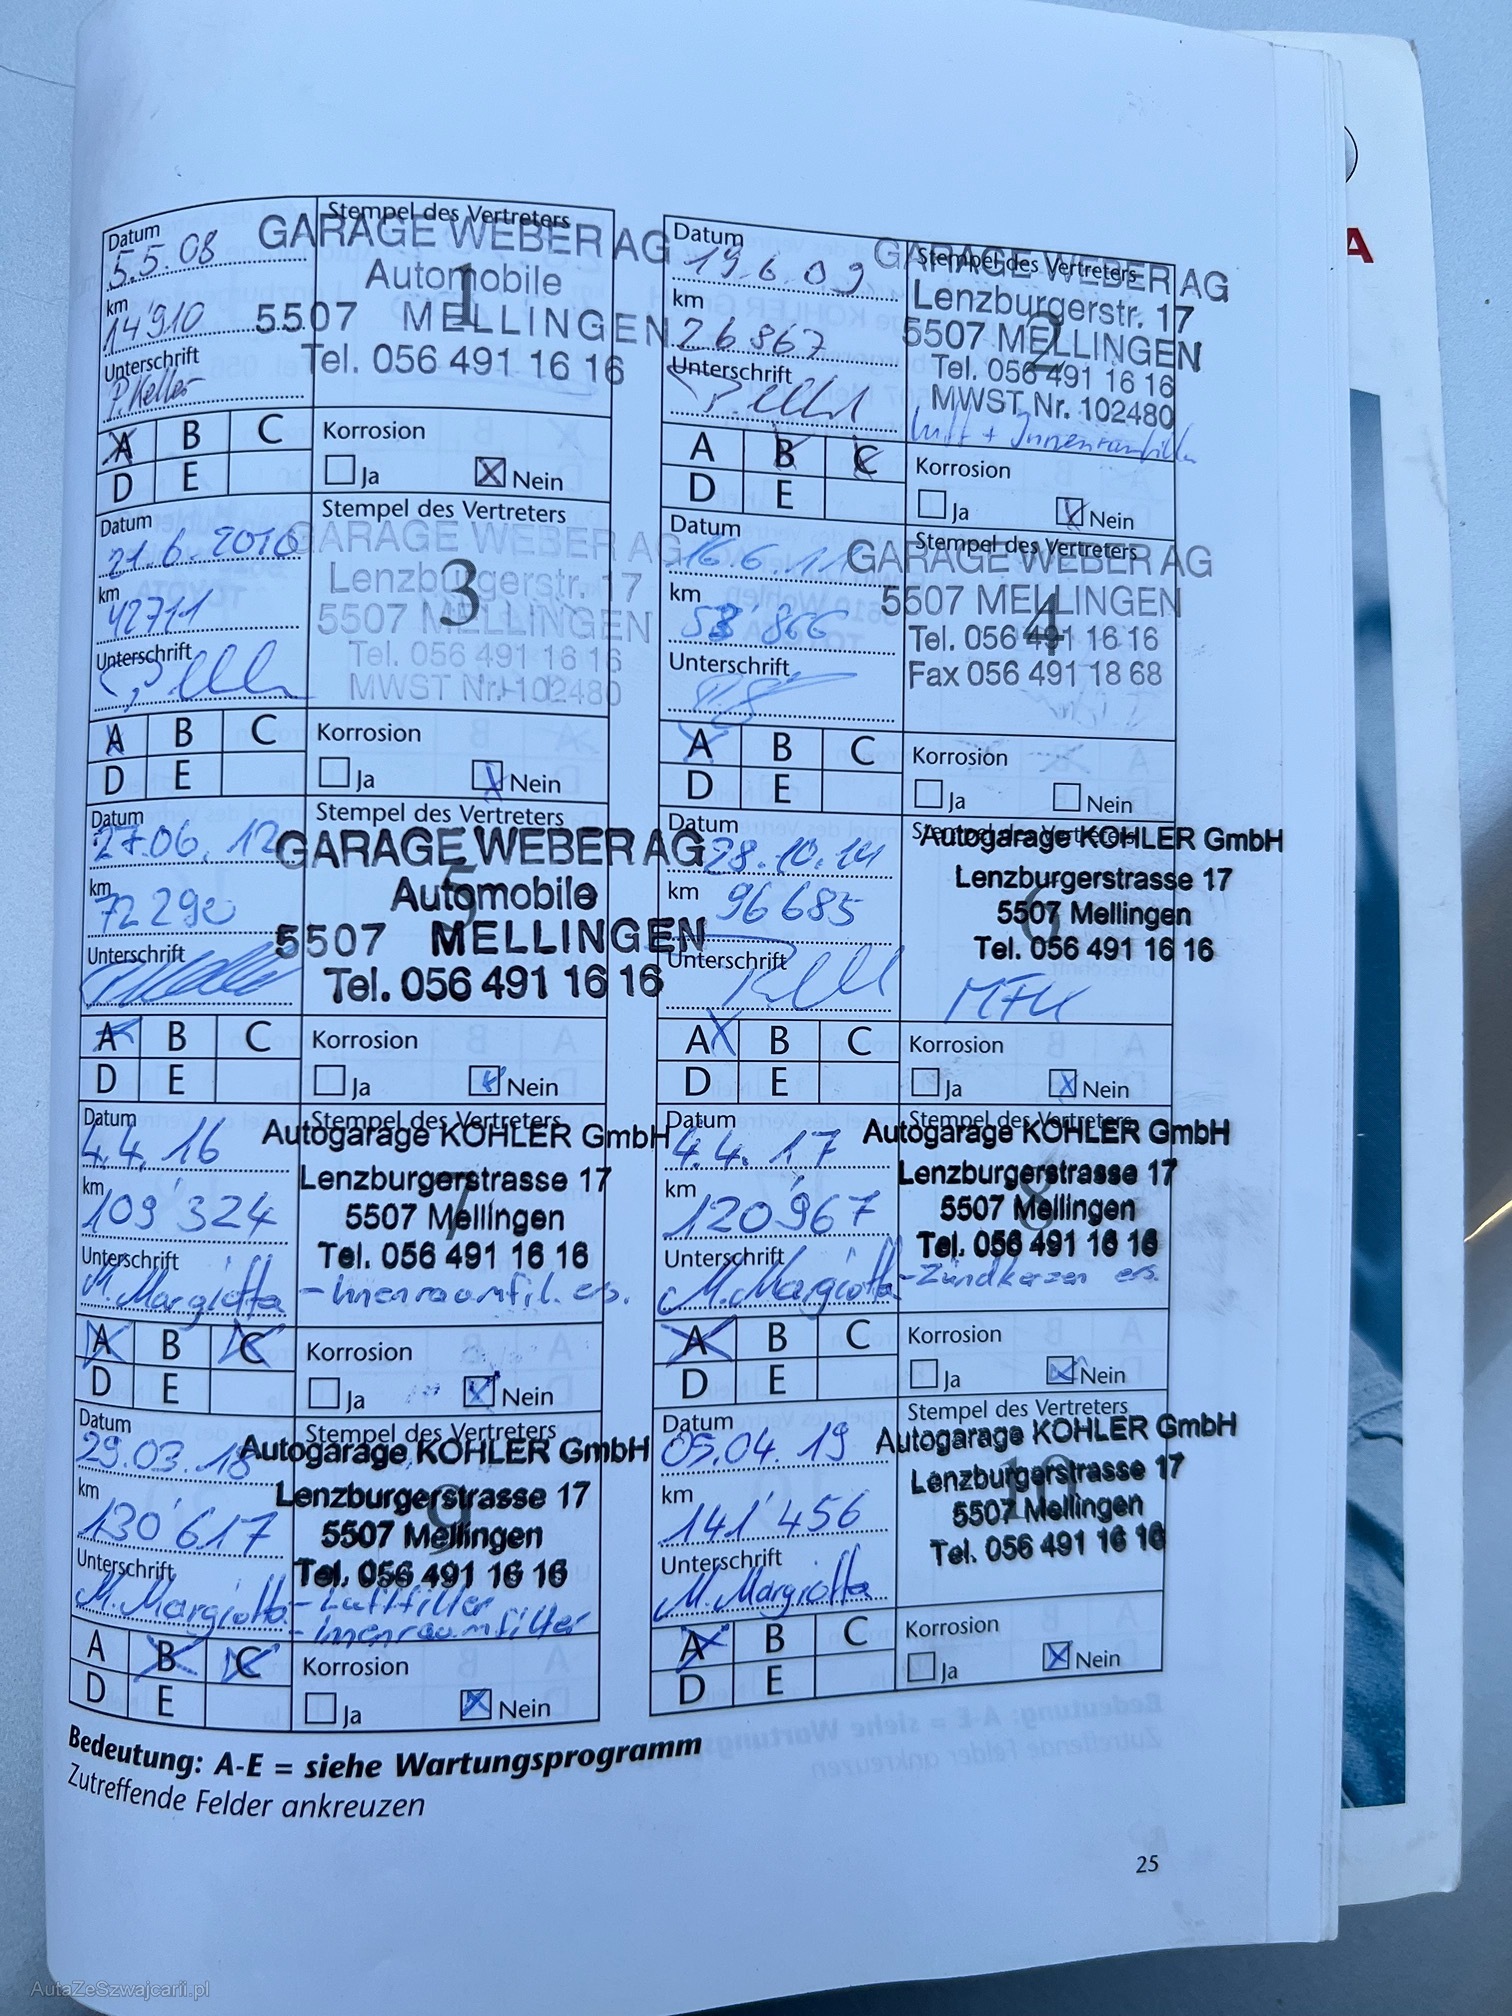 Datum
5.5.08
Stempel des Vertreters
GARAGE WEBER AG
Automobile
5507 MELLINGEN
Tel. 056 491 16 16
1
km
14'910
Unterschrift
P. Keller
A B C
D E
Korrosion
Ja Nein
Datum
19.6.09
Stempel des Vertreters
GARAGE WEBER AG
Lenzburgerstr. 17
5507 MELLINGEN
Tel. 056 491 16 16
MWST Nr. 102480
2
km
26867
Unterschrift
Luft + Innenraumfilter
A B C
D E
Korrosion
Ja Nein
Datum
21.6.2010
Stempel des Vertreters
GARAGE WEBER AG
Lenzburgerstr. 17
5507 MELLINGEN
Tel. 056 491 16 16
MWST Nr. 102480
3
km
42711
Unterschrift
A B C
D E
Korrosion
Ja Nein
Datum
16.6.11
Stempel des Vertreters
GARAGE WEBER AG
5507 MELLINGEN
Tel. 056 491 16 16
Fax 056 491 18 68
4
km
Unterschrift
A B C
D E
Korrosion
Ja Nein
Datum
27.06.12
Stempel des Vertreters
GARAGE WEBER AG
Automobile
5507 MELLINGEN
Tel. 056 491 16 16
5
km
72290
Unterschrift
A B C
D E
Korrosion
Ja Nein
Datum
28.10.14
Stempel des Vertreters
Autogarage KOHLER GmbH
Lenzburgerstrasse 17
5507 Mellingen
Tel. 056 491 16 16
6
km
96685
Unterschrift
MFK
A B C
D E
Korrosion
Ja Nein
Datum
4.4.16
Stempel des Vertreters
Autogarage KOHLER GmbH
Lenzburgerstrasse 17
5507 Mellingen
Tel. 056 491 16 16
7
km
109'324
Unterschrift
M. Margiotta
- Innenraumfil. ers.
A B C
D E
Korrosion
Ja Nein
Datum
4.4.17
Stempel des Vertreters
Autogarage KOHLER GmbH
Lenzburgerstrasse 17
5507 Mellingen
Tel. 056 491 16 16
8
km
120'967
Unterschrift
M. Margiotta
- Zündkerzen ers.
A B C
D E
Korrosion
Ja Nein
Datum
29.03.18
Stempel des Vertreters
Autogarage KOHLER GmbH
Lenzburgerstrasse 17
5507 Mellingen
Tel. 056 491 16 16
9
km
130'617
Unterschrift
M. Margiotta
- Luftfilter
- Innenraumfilter
A B C
D E
Korrosion
Ja Nein
Datum
05.04.19
Stempel des Vertreters
Autogarage KOHLER GmbH
Lenzburgerstrasse 17
5507 Mellingen
Tel. 056 491 16 16
10
km
141'456
Unterschrift
M. Margiotta
A B C
D E
Korrosion
Ja Nein
Bedeutung: A-E = siehe Wartungsprogramm
Zutreffende Felder ankreuzen
25
A
AutaZeSzwajcarii.pl